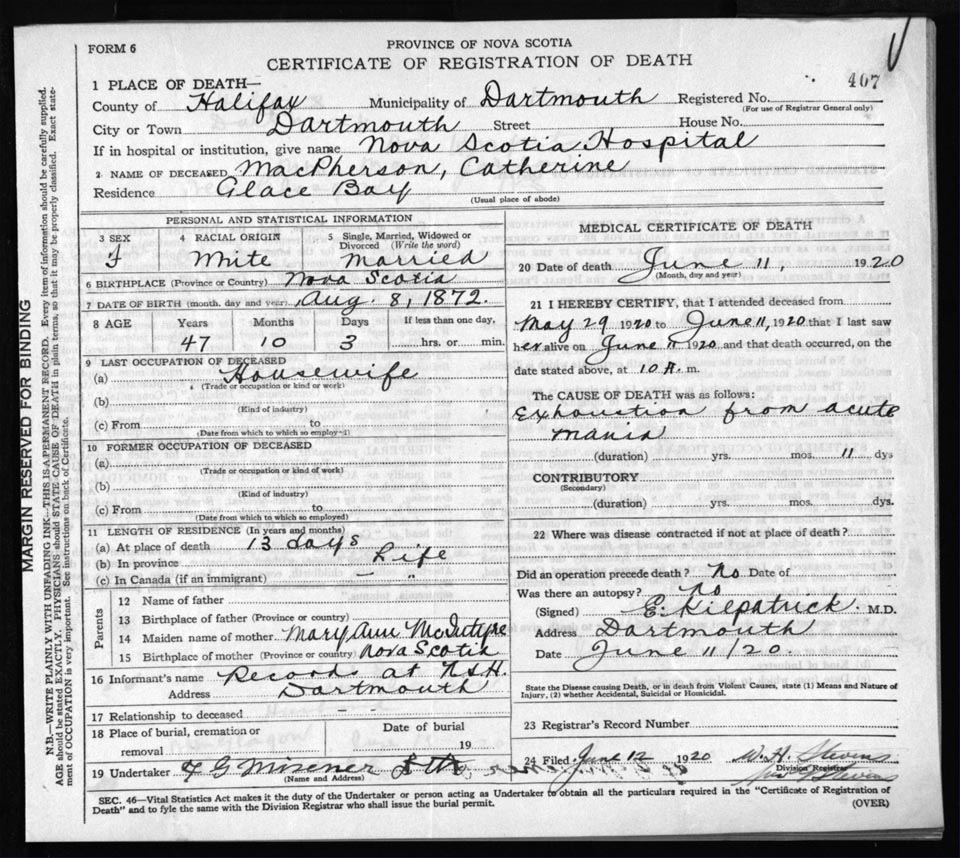 FORM 6
PROVINCE OF NOVA SCOTIA
CERTIFICATE OF REGISTRATION OF DEATH
407
1 PLACE OF DEATH—
County of Halifax Municipality of Dartmouth Registered No.
(For use of Registrar General only)
City or Town Dartmouth Street House No.
If in hospital or institution, give name Nova Scotia Hospital
2 NAME OF DECEASED MacPherson, Catherine
Residence Glace Bay
(Usual place of abode)
PERSONAL AND STATISTICAL INFORMATION
3 SEX 4 RACIAL ORIGIN 5 Single, Married, Widowed or Divorced (Write the word)
f White Married
6 BIRTHPLACE (Province or Country) Nova Scotia
7 DATE OF BIRTH (month, day and year) Aug. 8, 1872.
8 AGE Years Months Days If less than one day,
47 10 3 hrs. or min.
9 LAST OCCUPATION OF DECEASED
(a) Housewife
(Trade or occupation or kind of work)
(b)
(Kind of industry)
(c) From to
(Date from which to which so employed)
10 FORMER OCCUPATION OF DECEASED
(a)
(Trade or occupation or kind of work)
(b)
(Kind of industry)
(c) From to
(Date from which to which so employed)
11 LENGTH OF RESIDENCE (In years and months)
(a) At place of death 13 days
(b) In province Life
(c) In Canada (if an immigrant) — "
Parents
12 Name of father
13 Birthplace of father (Province or country)
14 Maiden name of mother Mary Ann McIntyre
15 Birthplace of mother (Province or country) Nova Scotia
16 Informant's name Records at N.S.H.
Address Dartmouth
17 Relationship to deceased - -
18 Place of burial, cremation or removal Date of burial
19
19 Undertaker F G Misener
(Name and Address)
MEDICAL CERTIFICATE OF DEATH
20 Date of death June 11, 1920
(Month, day and year)
21 I HEREBY CERTIFY, that I attended deceased from
May 29 1920 to June 11, 1920 that I last saw
her alive on June 11 1920 and that death occurred, on the
date stated above, at 10 A. m.
The CAUSE OF DEATH was as follows:
Exhaustion from acute
mania
(duration) yrs. mos. 11 dys
CONTRIBUTORY
(Secondary)
(duration) yrs. mos. dys.
22 Where was disease contracted if not at place of death?
Did an operation precede death? No Date of
Was there an autopsy? No
(Signed) E. Kilpatrick. M.D.
Address Dartmouth
Date June 11/20.
State the Disease causing Death, or in death from Violent Causes, state (1) Means and Nature of
Injury, (2) whether Accidental, Suicidal or Homicidal.
23 Registrar's Record Number
24 Filed June 12 1920 W.H. Stevens
Division Registrar
SEC. 46—Vital Statistics Act makes it the duty of the Undertaker or person acting as Undertaker to obtain all the particulars required in the "Certificate of Registration of
Death" and to fyle the same with the Division Registrar who shall issue the burial permit. (OVER)
MARGIN RESERVED FOR BINDING
N.B.—WRITE PLAINLY WITH UNFADING INK—THIS IS A PERMANENT RECORD. Every item of information should be carefully supplied.
AGE should be stated EXACTLY. PHYSICIANS should STATE CAUSE OF DEATH in plain terms, so that it may be properly classified. Exact state-
ment of OCCUPATION is very important. See instructions on back of Certificate.